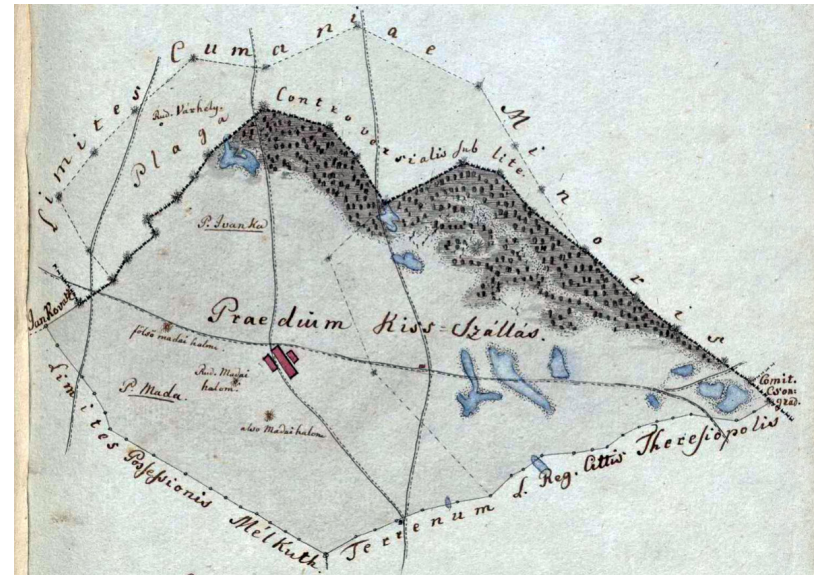 Limites Cumaniae Minoris
Plaga Controversialis sub lite.
Rud. Várhely.
P. Ivanka
Jankovatz
Praedium Kiss-Szállás.
fölső madai halom.
Rud. Madai
halom.
P. Mada.
alsó Madai halom
Comit.
Cson-
grad.
Limites Possessionis Mélkuth.
Terrenum L. Reg. Cittis Theresiopolis